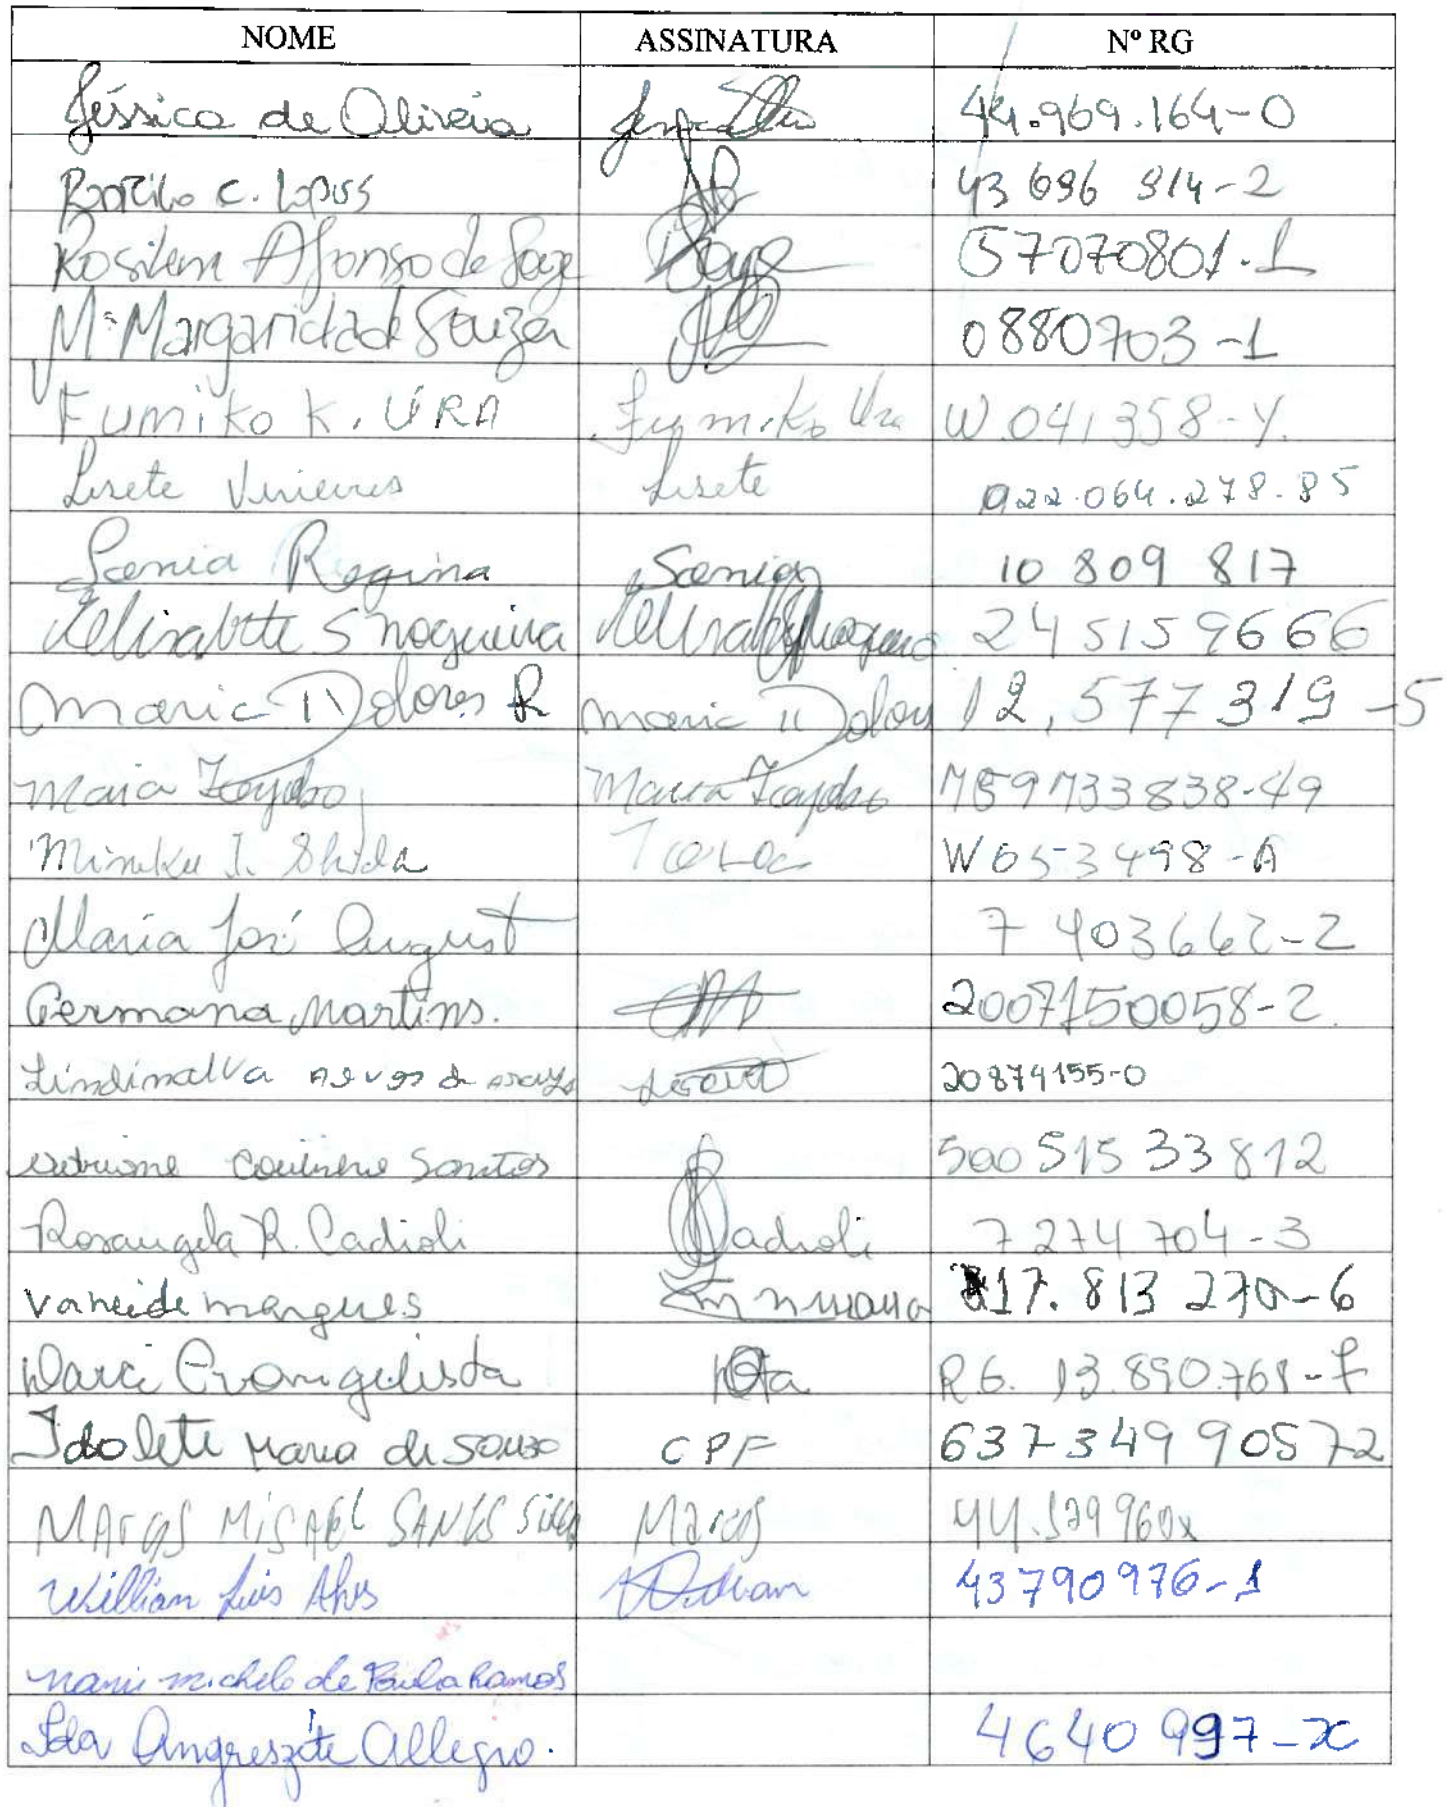 NOME ASSINATURA Nº RG
Jéssica de Oliveira 44.969.164-0
C. Lopes 43 696 314-2
Afonso de 57070801-1
Mª Margarida de Souza 0880703-1
Fumiko K. URA Fumiko Ura W 041358-Y.
Lisete Lisete 922.064.278-85
Sonia Regina Sonia 10 809 817
Elisabete S Nogueira 245159666
Maria D Dolores R Maria D Dolors 12,577319-5
Maria Maria 759733838-49
I. Shida W053498-A
Maria José August 7 403662-2
Germana Martins. 2007150058-2
Lindinalva Alves de Araujo 20879155-0
Coutinho Santos 500 515 33 812
Rosangela R. Cadioli Cadioli 7274704-3
Vaneide marques 17.813 270-6
Darci Evangelista RG. 13.890.768-7
Idolete Maria de Souza CPF 637349 90572
Marcos Misael Santos Silva Marcos
Willian Luis Alves Willian 43790976-1
michele de Paula Ramos
Ida Allegro. 4640997-x